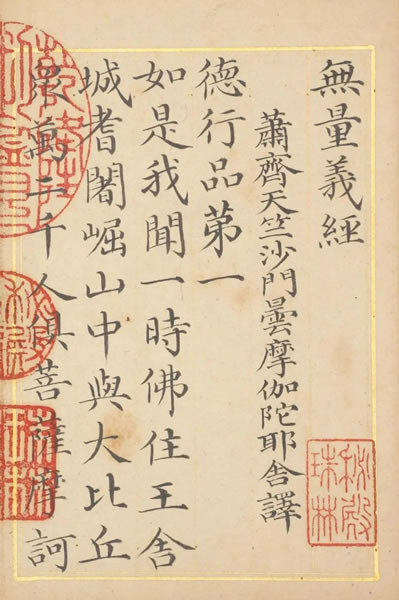 無量義經
蕭齊天竺沙門曇摩伽陀耶舍譯
德行品第一
如是我聞一時佛住王舍
城耆闍崛山中與大比丘
眾萬二千人俱菩薩摩訶
秘殿
珠林